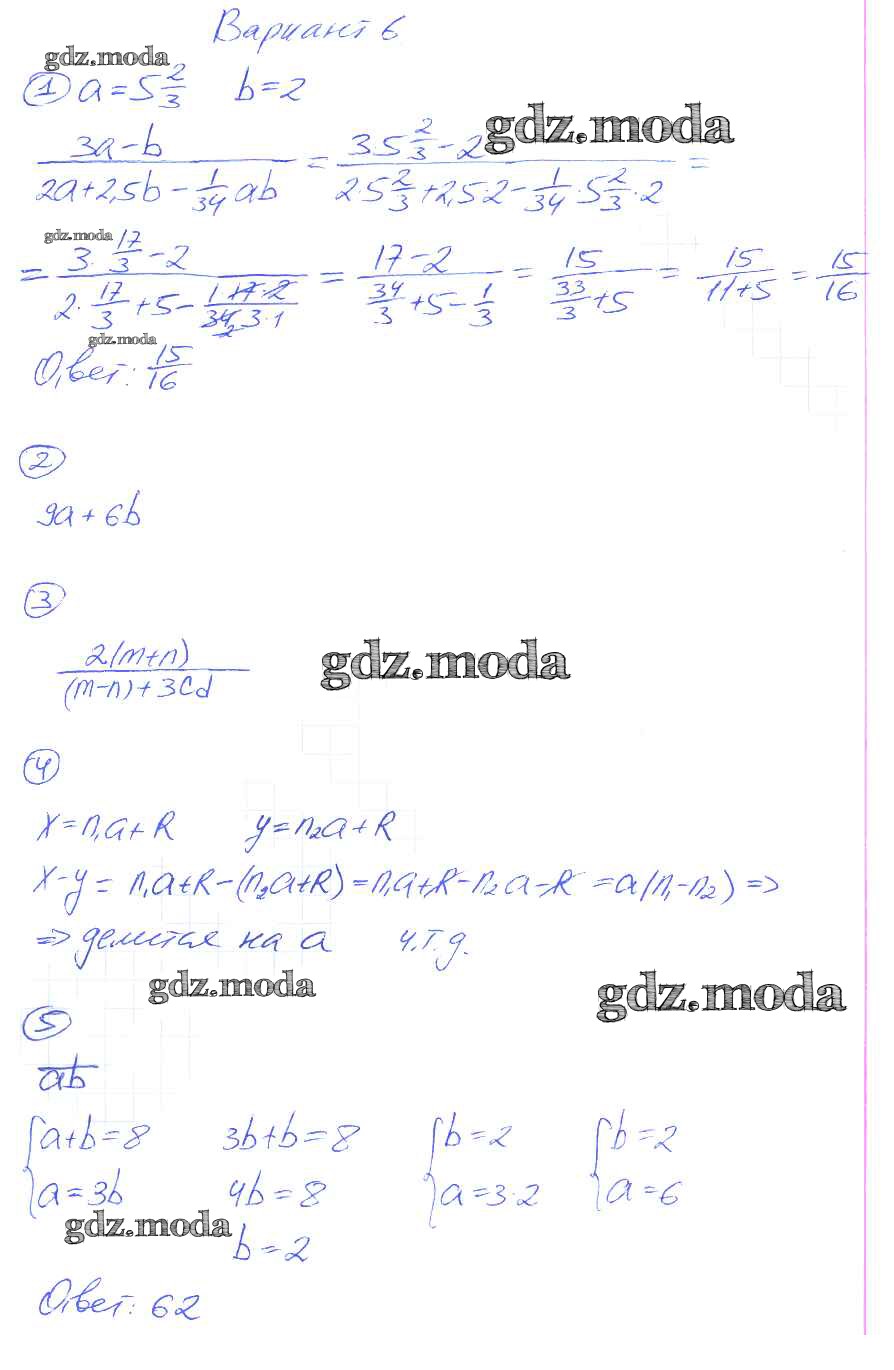 Вариант 6
gdz.moda
① a = 5 2/3   b = 2
gdz.moda
(3a - b)/(2a + 2,5b - 1/34 ab) = (3·5 2/3 - 2)/(2·5 2/3 + 2,5·2 - 1/34·5 2/3·2) =
gdz.moda
= (3·17/3 - 2)/(2·17/3 + 5 - (1·17·2)/(34·3·1)) = (17 - 2)/(34/3 + 5 - 1/3) = 15/(33/3 + 5) = 15/(11 + 5) = 15/16
gdz.moda
Ответ: 15/16
②
9a + 6b
③
2(m+n)/((m-n) + 3cd)
gdz.moda
④
x = n₁a + R   y = n₂a + R
x - y = n₁a + R - (n₂a + R) = n₁a + R - n₂a - R = a(n₁ - n₂) =>
=> делится на a   ч.т.д.
gdz.moda
gdz.moda
⑤
ab
{a + b = 8   3b + b = 8   {b = 2   {b = 2
{a = 3b   4b = 8   {a = 3·2   {a = 6
gdz.moda
b = 2
Ответ: 62